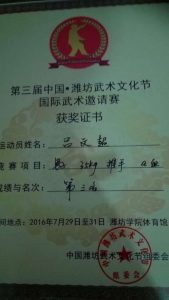 第三届中国·潍坊武术文化节
国际武术邀请赛
获奖证书
运动员姓名：吕文超
竞赛项目：男 75kg 推手
成绩与名次：第三名
时间地点：2016年7月29日至31日 潍坊学院体育馆
中国潍坊武术文化节组委会
组委会